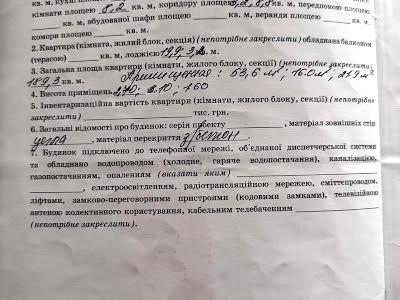 кв. м, кухні площею 8.2 кв. м, коридору площею 8,8 кв. м, передпокою площею
кв. м, вбудованої шафи площею кв. м, веранди площею кв. м,
комори площею кв. м.
2. Квартира (кімната, жилий блок, секція) (непотрібне закреслити) обладнана балконом
(терасою) кв. м, лоджією кв. м.
3. Загальна площа квартири (кімнати, жилого блоку, секції) (непотрібне закреслити)
189,3 кв. м. : 53,6 м²; 16.0 м²; 21,9 м²
4. Висота приміщень 270; 210; 160
5. Інвентаризаційна вартість квартири (кімнати, жилого блоку, секції) (непотрібне
закреслити) тис. грн.
6. Загальні відомості про будинок: серія проекту , матеріал зовнішніх стін
цегла , матеріал перекриття з/бетон.
7. Будинок підключено до телефонної мережі, об'єднаної диспетчерської системи
та обладнано водопроводом (холодне, гаряче водопостачання), каналізацією,
газопостачанням, опаленням (вказати яким)
, електроосвітленням, радіотрансляційною мережею, сміттєпроводом,
ліфтами, замково-переговорними пристроями (кодовими замками), телевізійною
антеною колективного користування, кабельним телебаченням
(непотрібне закреслити).